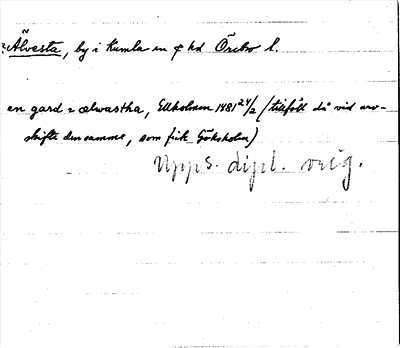 Älvesta, by i Kumla sn o hd Örebro l.
en gard i ælwastha, Ekholmen 1481 24/2 (tillföll då vid arv-
skifte densamme, som fick Göksholm)
Upps. dipl. orig.